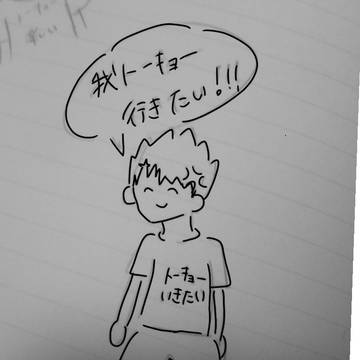 我トーキョー
行きたい!!!
トーキョー
いきたい